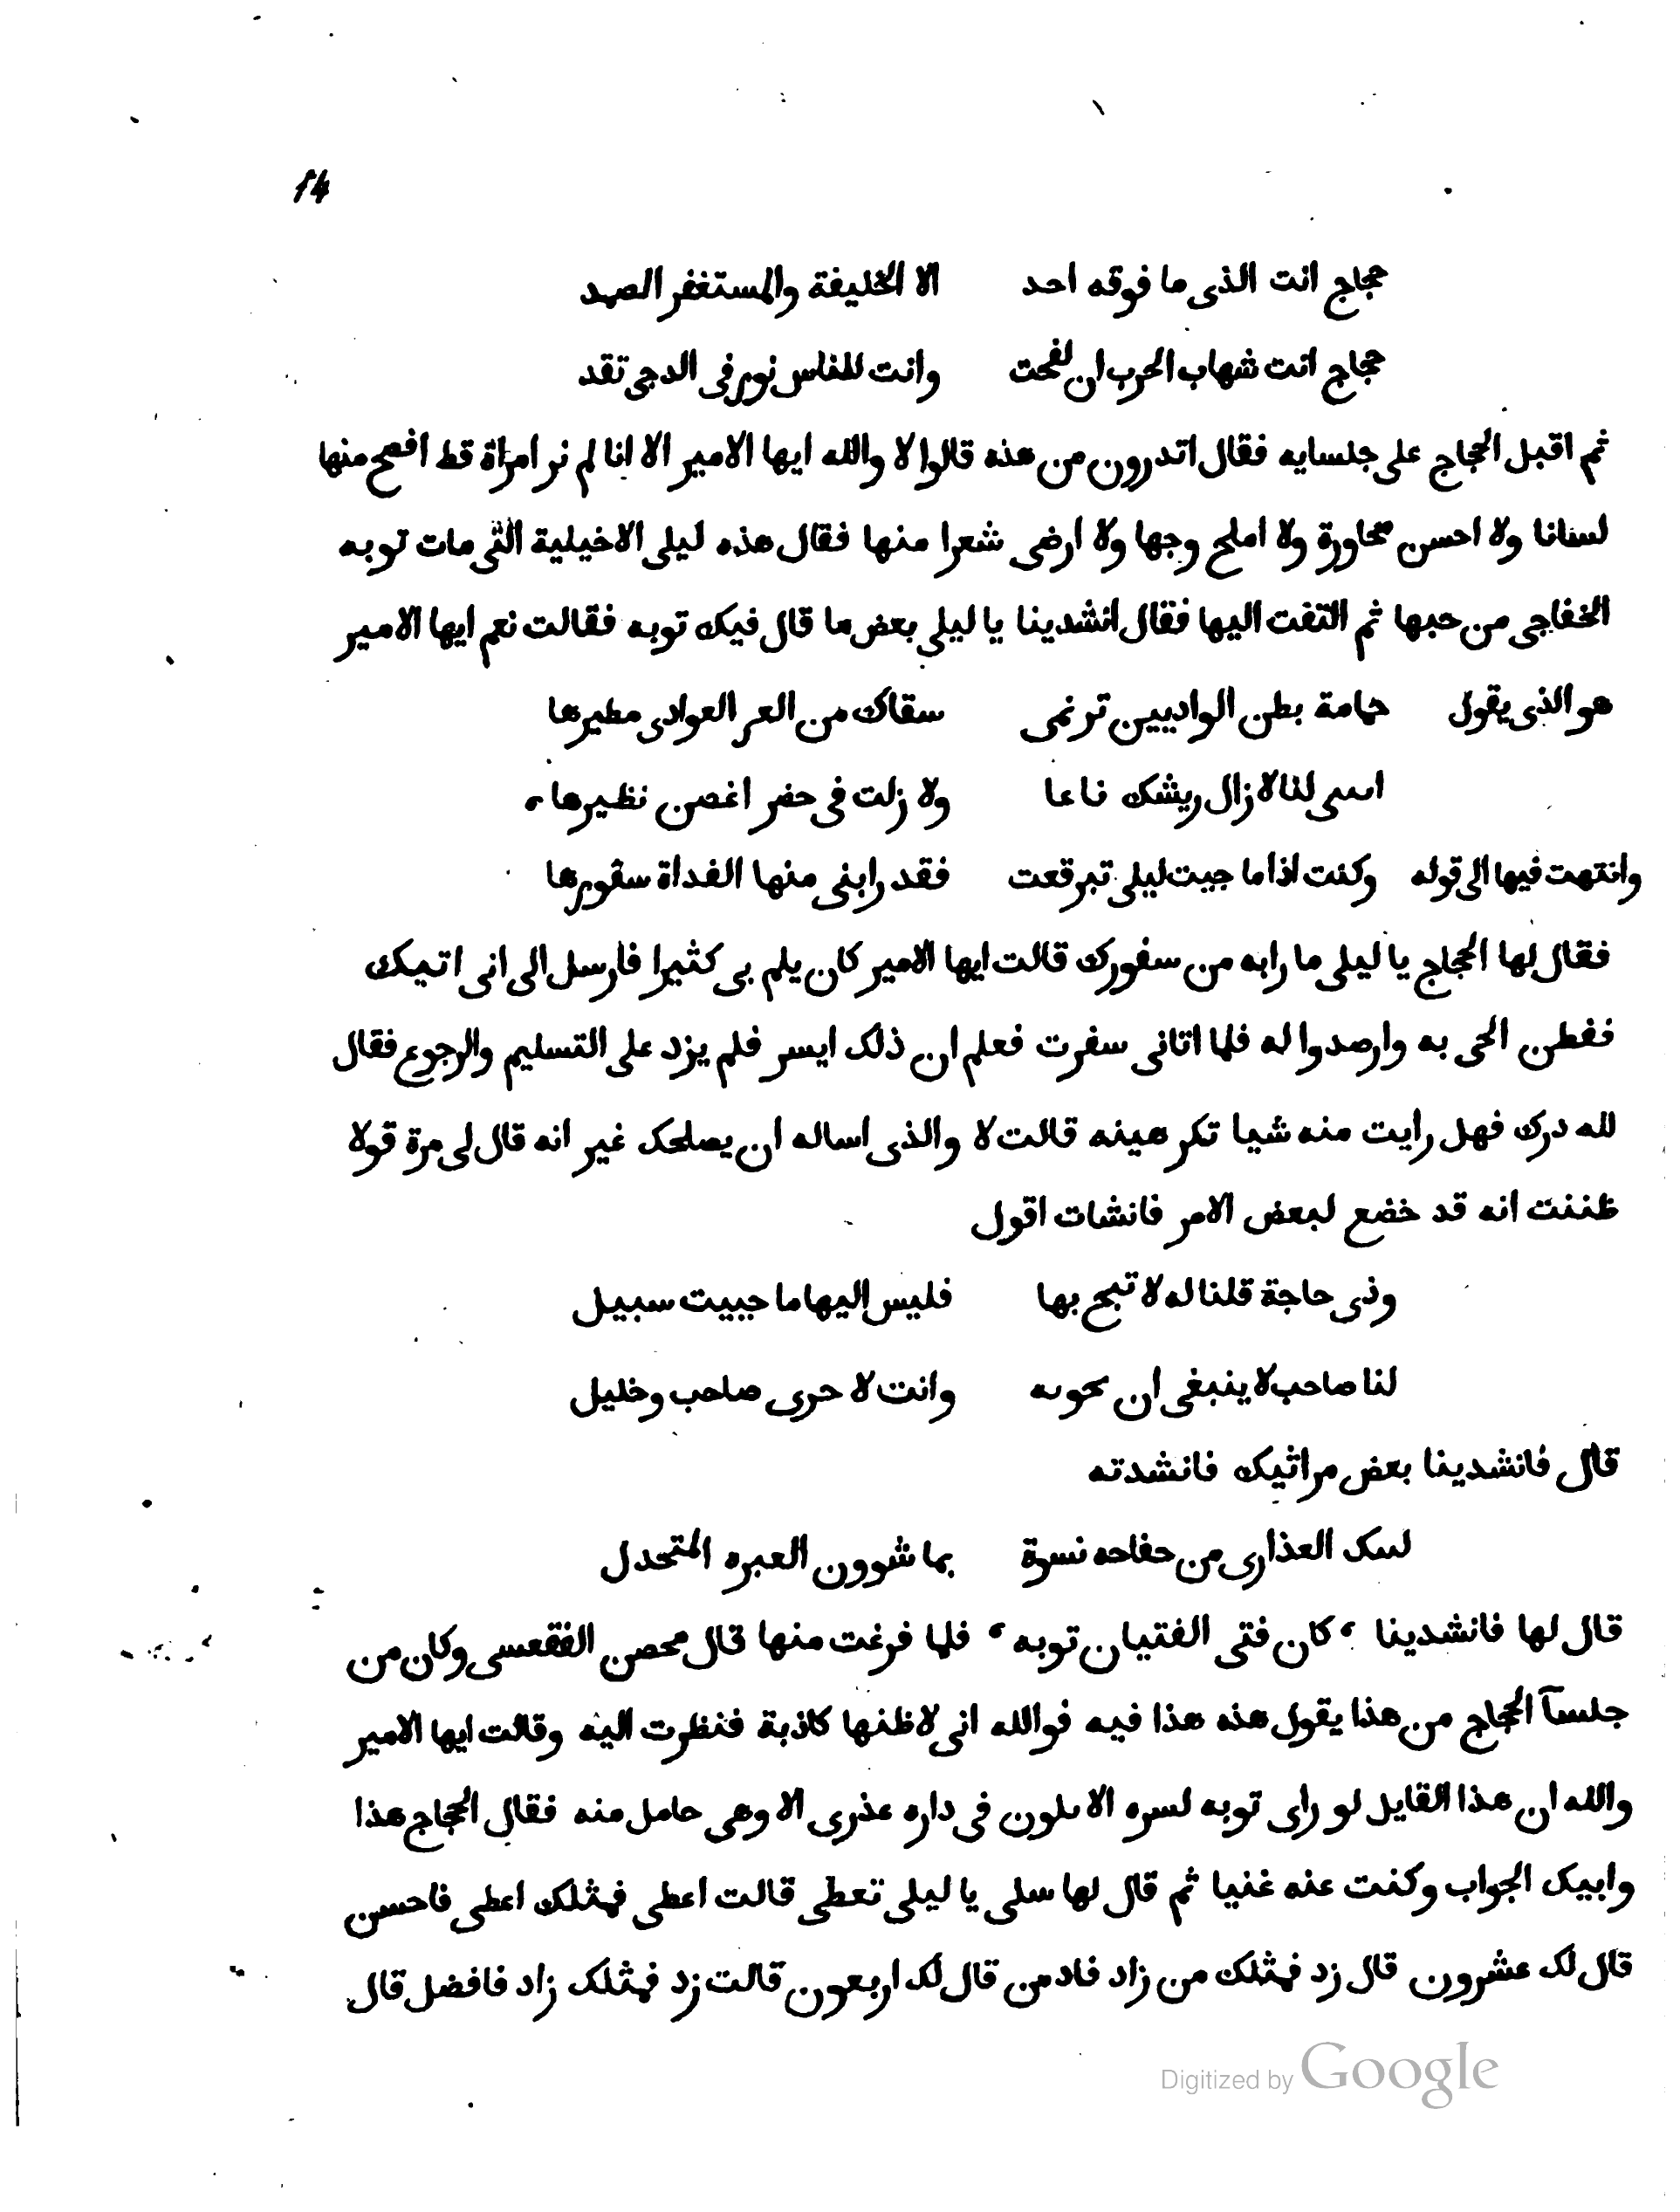 14
حجاج انت الذى ما فوقه احد الا الخليفة والمستغفر الصمد
حجاج انت شهاب الحرب ان لقحت وانت للناس نور فى الدجى تقد
ثم اقبل الحجاج على جلسايه فقال اتدرون من هذه قالوا لا والله ايها الامير الا انا لم نر امراة قط افصح منها
لسانا ولا احسن محاورة ولا املح وجها ولا ارضى شعرا منها فقال هذه ليلى الاخيلية التى مات توبه
الخفاجى من حبها ثم التفت اليها فقال انشدينا يا ليلى بعض ما قال فيك توبه فقالت نعم ايها الامير
هو الذى يقول حمامة بطن الواديين ترنمى سقاك من العر العوادى مطيرها
لنا لا زال ريشك ناعا ولا زلت فى حضر اغصن نظيرها
وانتهت فيها الى قوله وكنت اذا ما جيت ليلى تبرقعت فقد رابنى منها الغداة سفورها
فقال لها الحجاج يا ليلى ما رابه من سفورك قالت ايها الامير كان يلم بى كثيرا فارسل الى انى اتيك
ففطن الحى به وارصدوا له فلما اتانى سفرت فعلم ان ذلك ايسر فلم يزد على التسليم والرجوع فقال
لله درك فهل رايت منه شيا تكرهينه قالت لا والذى اساله ان يصلحك غير انه قال لى مرة قولا
ظننت انه قد خضع لبعض الامر فانشات اقول
وذى حاجة قلنا له لا تبح بها فليس اليها ما حييت سبيل
لنا صاحب لا ينبغى ان وانت لا حرى صاحب وخليل
قال فانشدينا بعض مراثيك فانشدته
العذارى من نسوة بما شوون العبره المتحدل
قال لها فانشدينا ، كان فتى الفتيان توبه ، فلما فرغت منها قال محصن الفقعسى وكان من
جلسآ الحجاج من هذا يقول هذه هذا فيه فوالله انى لاظنها كاذبة فنظرت اليه وقالت ايها الامير
والله ان هذا القايل لو راى توبه لسره الا فى داره عذرى الا وهى حامل منه فقال الحجاج هذا
وابيك الجواب وكنت عنه غنيا ثم قال لها سلى يا ليلى تعطى قالت اعطى فمثلك اعطى فاحسن
قال لك عشرون قال زد فمثلك من زاد فادمن قال لك اربعون قالت زد فمثلك زاد فافضل قال
Digitized by Google